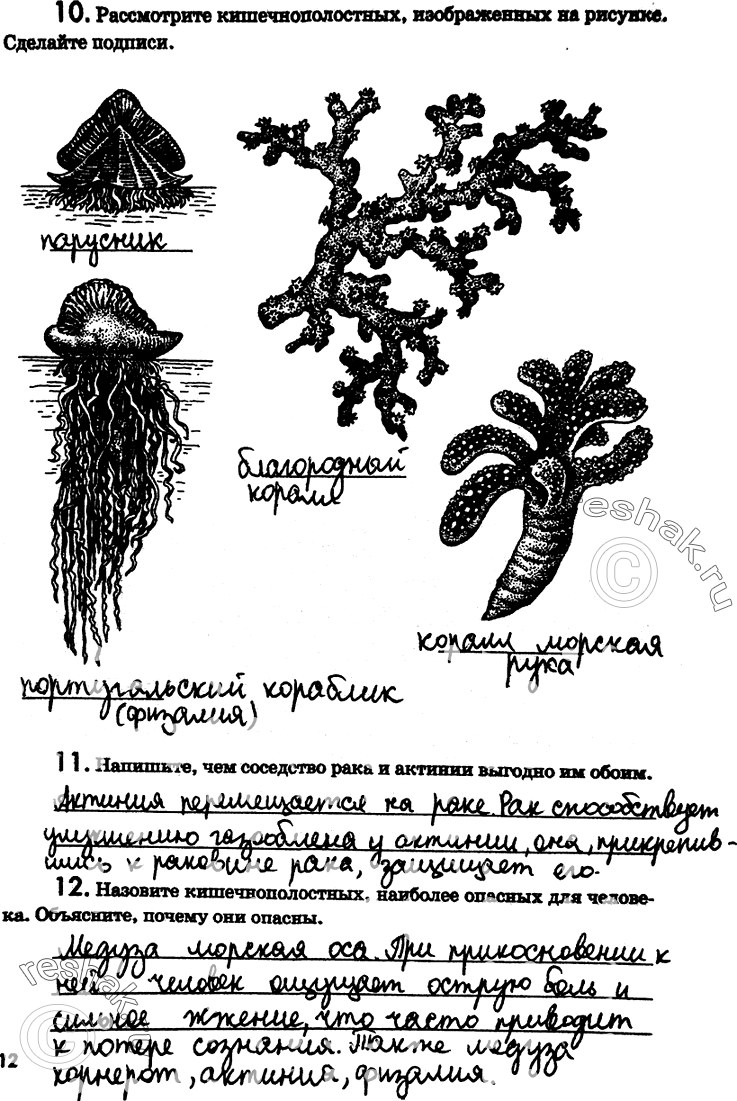 10. Рассмотрите кишечнополостных, изображенных на рисунке.
Сделайте подписи.
парусник
благородный
коралл
коралл морская
рука
португальский кораблик
(физалия)
reshak.ru
11. Напишите, чем соседство рака и актинии выгодно им обоим.
Актиния перемещается на раке. Рак способствует
улучшению газообмена у актинии, она, прикрепив-
шись к раковине рака, защищает его.
12. Назовите кишечнополостных, наиболее опасных для челове-
ка. Объясните, почему они опасны.
Медуза морская оса. При прикосновении к
ней человек ощущает острую боль и
сильное жжение, что часто приводит
к потере сознания. Также медуза
корнерот, актиния, физалия.
reshak.ru
12